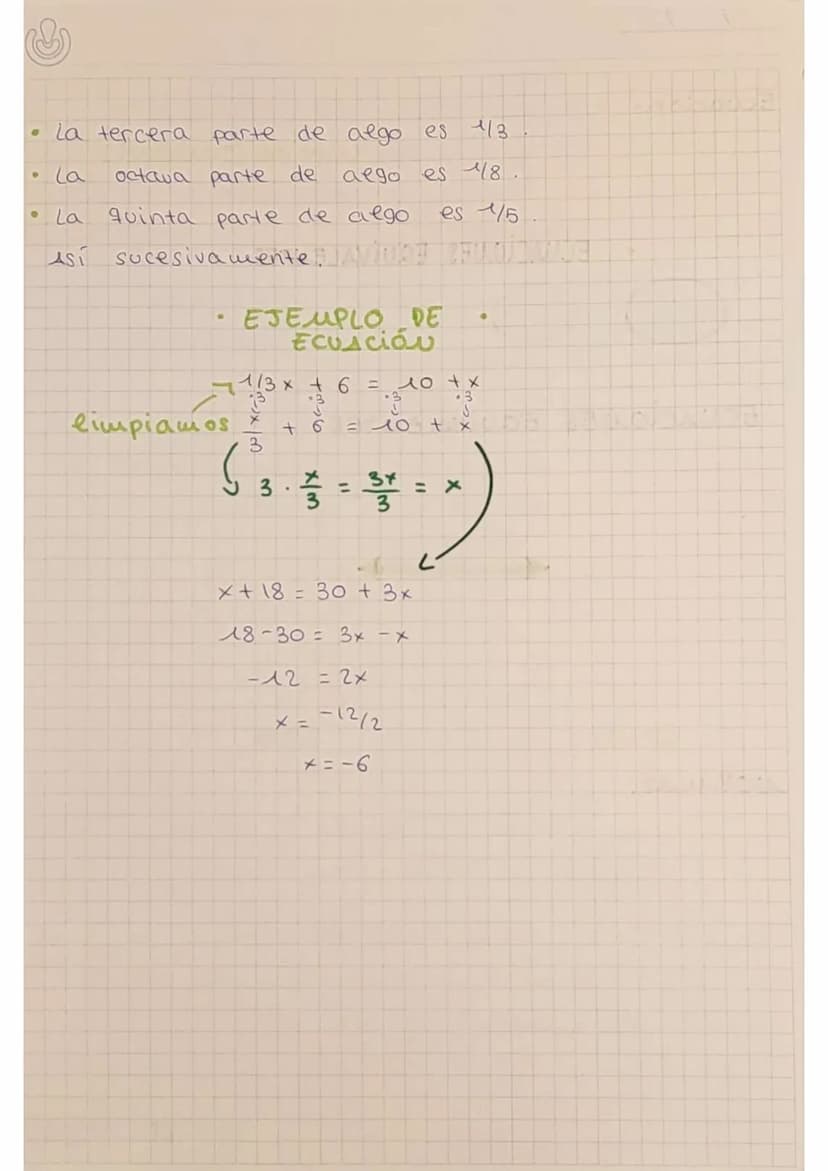 • La tercera parte de algo es 1/3.
• La octava parte de algo es 1/8.
• La quinta parte de algo es 1/5.
Así sucesivamente.
• EJEMPLO DE •
ECUACIÓN
1/3x + 6 = 10 + x
·3 ·3 ·3 ·3
limpiamos x/3 + 6 = 10 + x
3 · x/3 = 3x/3 = x
x + 18 = 30 + 3x
18 - 30 = 3x - x
-12 = 2x
x = -12/2
x = -6